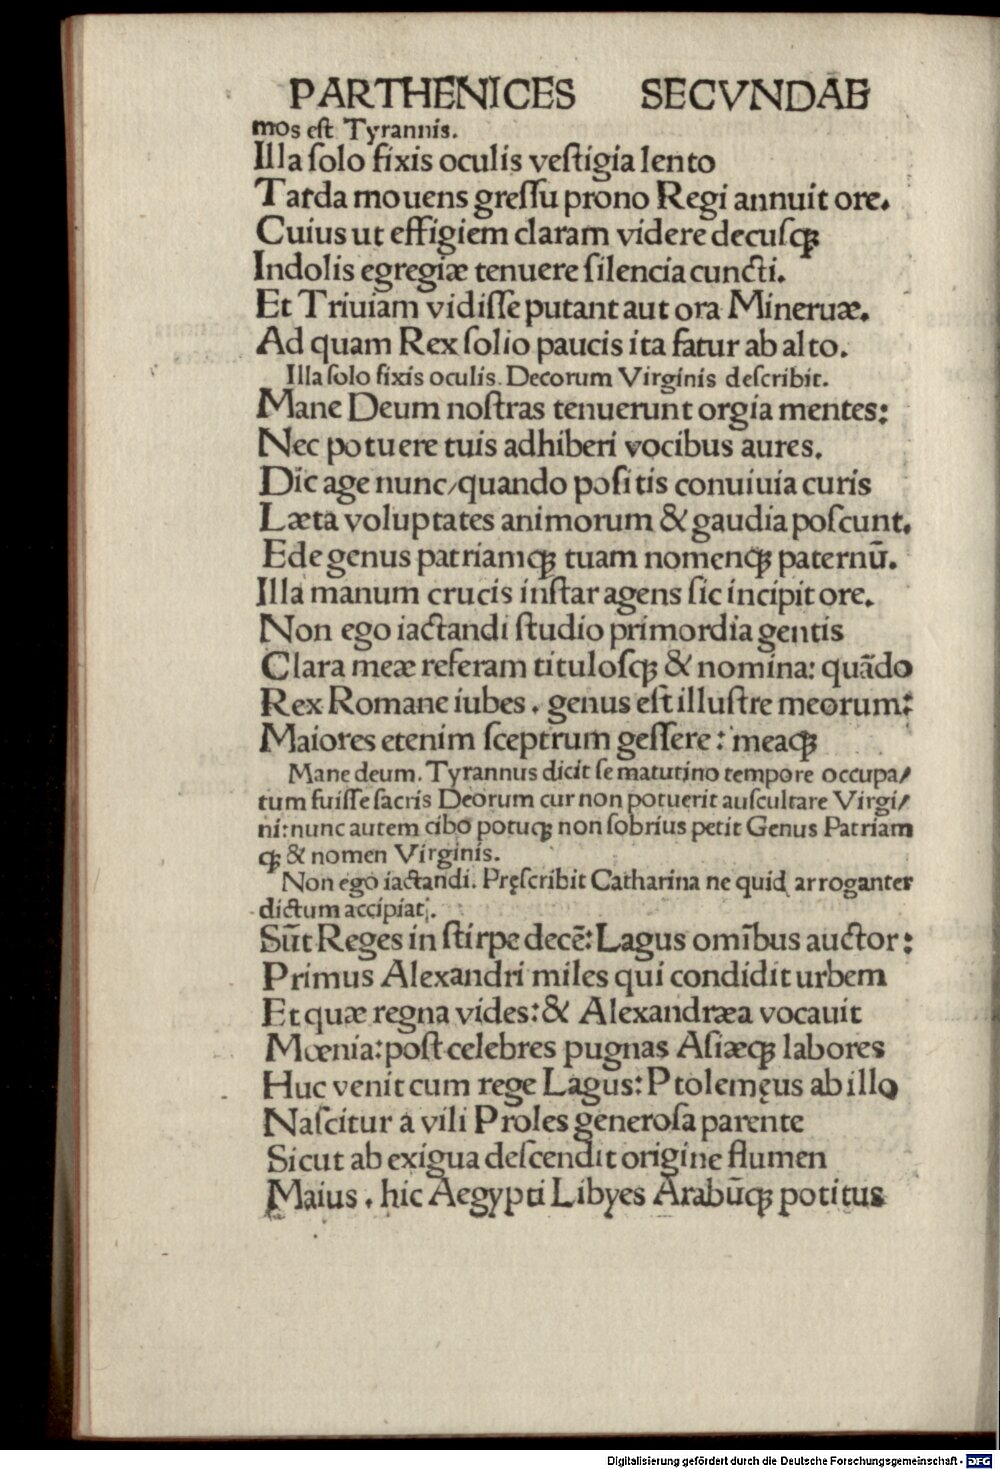 PARTHENICES SECVNDAE
mos eſt Tyrannis.
Illa ſolo fixis oculis veſtigia lento
Tarda mouens greſſu prono Regi annuit ore.
Cuius ut effigiem claram videre decuſqꝫ
Indolis egregiæ tenuere ſilencia cuncti.
Et Triuiam vidiſſe putant aut ora Mineruæ.
Ad quam Rex ſolio paucis ita fatur ab alto.
Illa ſolo fixis oculis. Decorum Virginis deſcribit.
Mane Deum noſtras tenuerunt orgia mentes:
Nec potuere tuis adhiberi vocibus aures.
Dic age nunc/quando poſitis conuiuia curis
Læta voluptates animorum & gaudia poſcunt.
Ede genus patriamqꝫ tuam nomenqꝫ paternū.
Illa manum crucis inſtar agens ſic incipit ore.
Non ego iactandi ſtudio primordia gentis
Clara meæ referam tituloſqꝫ & nomina: quādo
Rex Romane iubes. genus eſt illuſtre meorum:
Maiores etenim ſceptrum geſſere: meaqꝫ
Mane deum. Tyrannus dicit ſe matutino tempore occupa/
tum fuiſſe ſacris Deorum cur non potuerit auſcultare Virgi/
ni: nunc autem cibo potuqꝫ non ſobrius petit Genus Patriam
qꝫ & nomen Virginis.
Non ego iactandi. Pręſcribit Catharina ne quid arroganter
dictum accipiat.
Sūt Reges in ſtirpe decē: Lagus omībus auctor:
Primus Alexandri miles qui condidit urbem
Et quæ regna vides: & Alexandræa vocauit
Mœnia: poſt celebres pugnas Aſiæqꝫ labores
Huc venit cum rege Lagus: Ptolemęus ab illo
Naſcitur a vili Proles generoſa parente
Sicut ab exigua deſcendit origine flumen
Maius. hic Aegypti Libyes Arabūqꝫ potitus
Digitalisierung gefördert durch die Deutsche Forschungsgemeinschaft - DFG